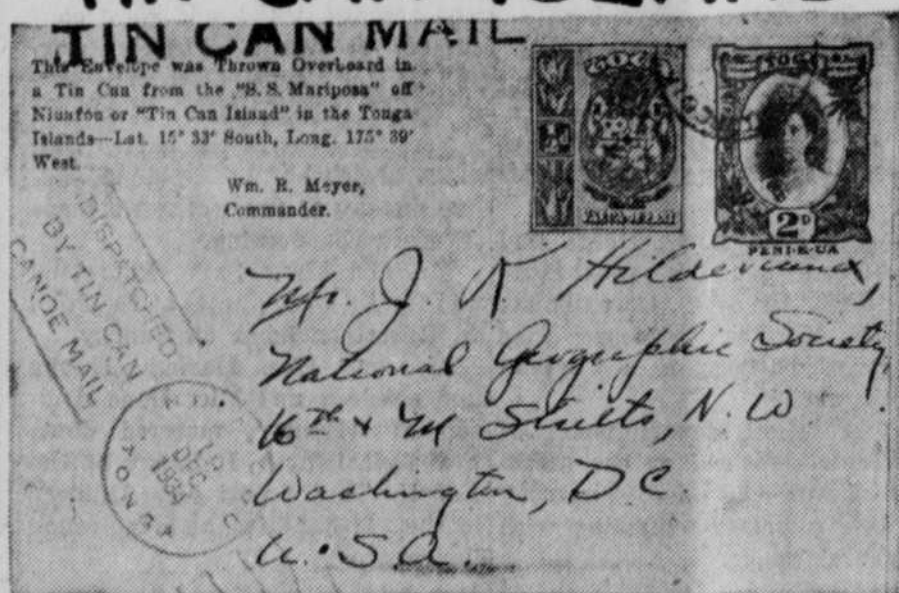 TIN CAN ISLAND
TIN CAN MAIL
This Envelope was Thrown Overboard in
a Tin Can from the "S. S. Mariposa" off
Niuafou or "Tin Can Island" in the Tonga
Islands—Lat. 15° 33' South, Long. 175° 39'
West.
Wm. R. Meyer,
Commander.
TOGA
TOGA
2D
PENI-E-UA
DISPATCHED
BY TIN CAN
CANOE MAIL
Mr. J. R. Hildebrand,
National Geographic Society
16th & M Streets, N.W
Washington, D.C.
U.S.A.
DEC
1934
TONGA